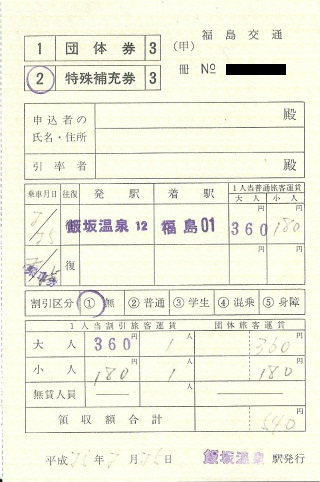 福島交通
1 団体券 3 (甲)
2 特殊補充券 3 冊 No
申込者の氏名・住所 殿
引率者 殿
乗車月日 往復 発駅 着駅 1人当普通旅客運賃
大人 小人
飯坂温泉 12 福島 01 円 360 円 180
復
割引区分 ① 無 ② 普通 ③ 学生 ④ 混乗 ⑤ 身障
1人当割引旅客運賃 団体旅客運賃
大人 360 円 1 人 360 円
小人 180 1 180
無賃人員
領収額合計 540
平成 年 月 日 飯坂温泉 駅発行